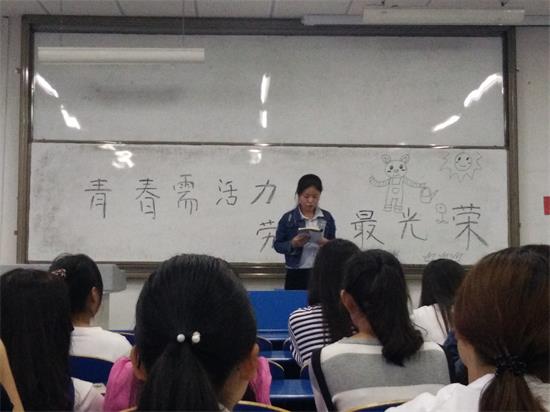 青春需活力
劳 最光荣